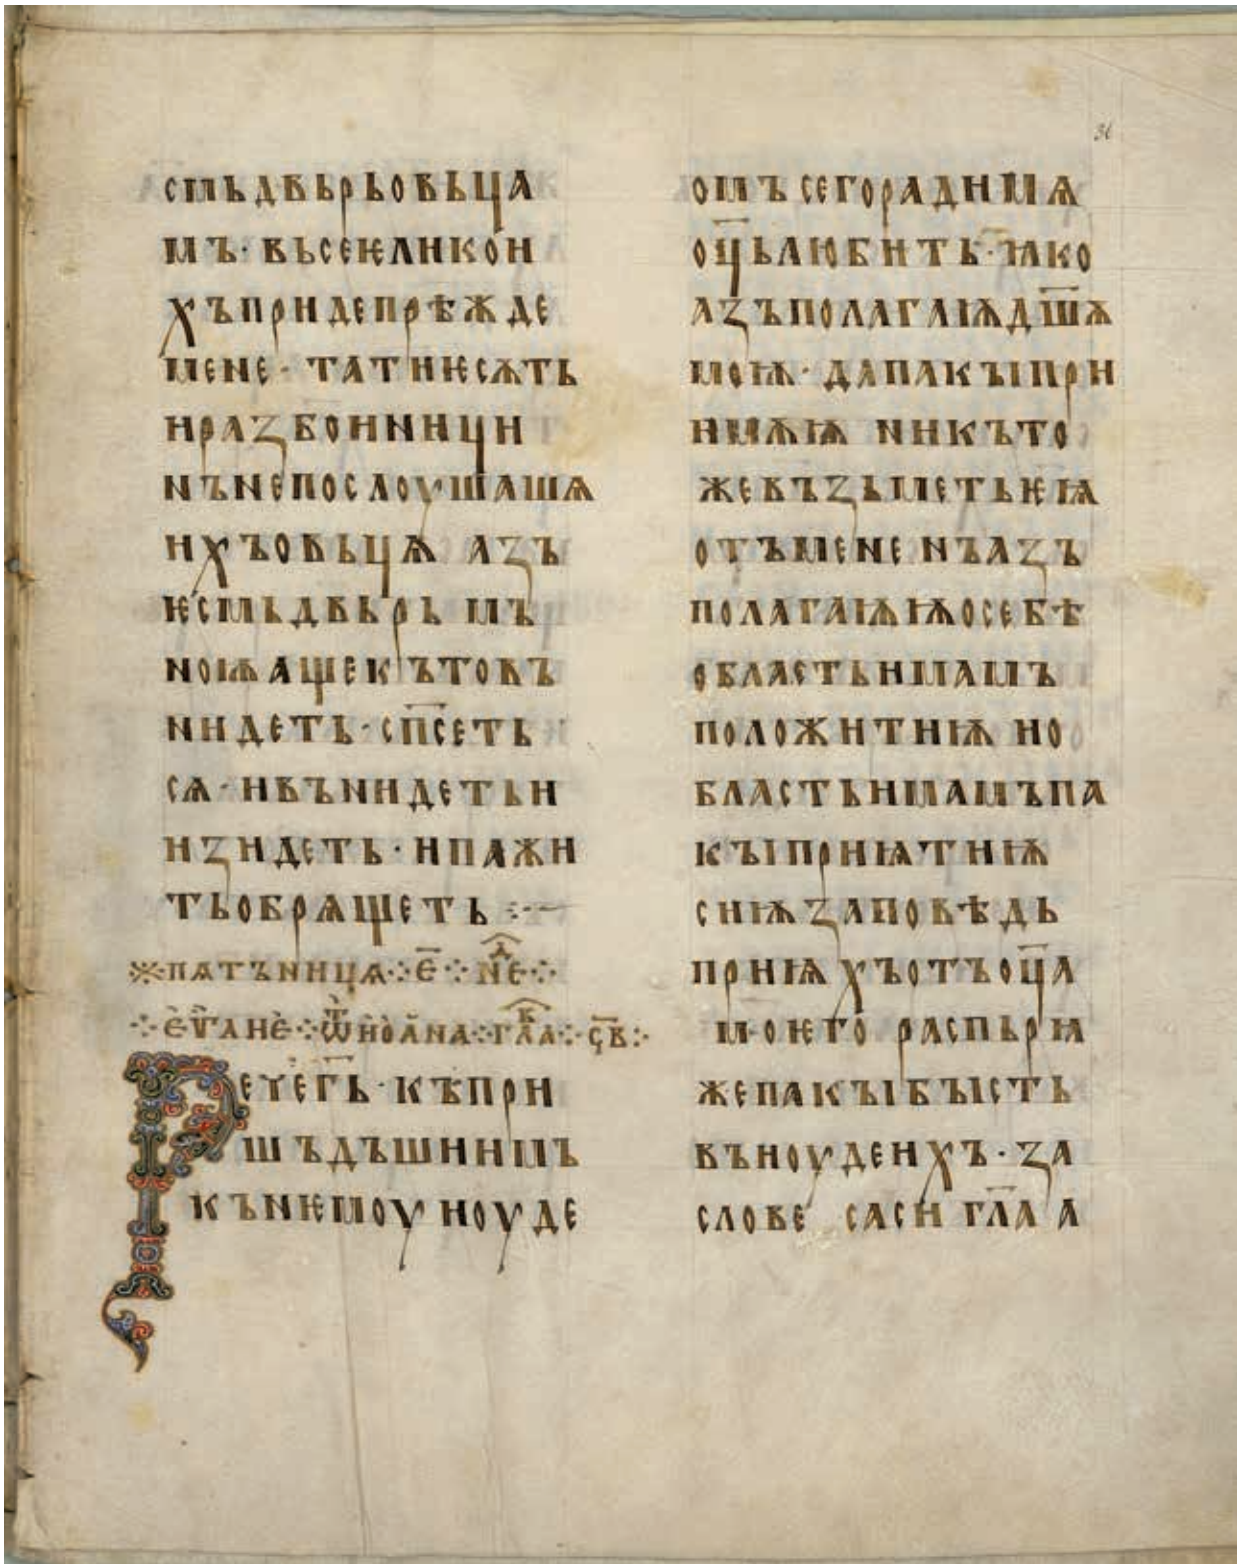 смьдвьрьовьца
мъ· вьсеѥликои
хъпридепрѣжде
мене· татиѥсѫть
иразбоиници
нънепослоушашѧ
ихъовьцѧ азъ
ѥсмьдвьрь мъ
ноѭащекътовъ
нидеть· сп҃сеть
сѧ· ивънидетьи
изидеть· ипажи
тьобрѧщеть :·—
※пѧтъница⁘е҃⁘нед҇е⁘
⁘еѵ҃глие⁘ѿиоана⁘гл҃а⁘ск҃в⁘
Речег҃ь· къпри
шъдъшиимъ
кънѥмоу июде
31
омъ сегорадимѧ
оц҃ьлюбить· ꙗко
азъполагаѭдш҃ѫ
моѭ· дапакъіпри
имѫѭ никъто
жевъзьметьѥѩ
отъмене нъазъ
полагаѭѭосебѣ
областьимамъ
положитиѭ ио
бластьимамъпа
къіприѩтиѭ
сиѭзаповѣдь
приѩхъотъоц҃а
моѥго распьрꙗ
жепакъібъість
въиоудеихъ· за
словеса си гл҃аа